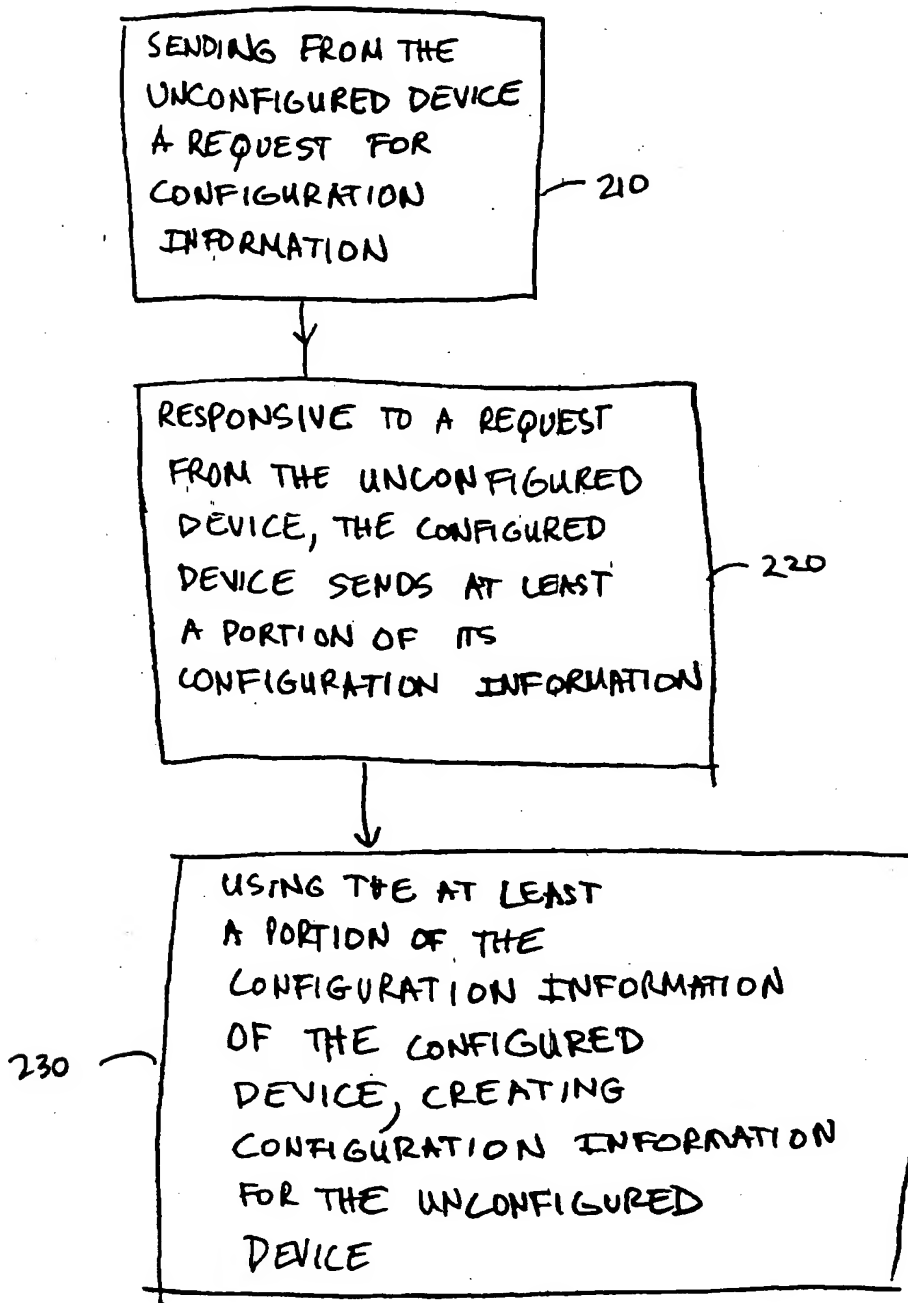 SENDING FROM THE
UNCONFIGURED DEVICE
A REQUEST FOR
CONFIGURATION
INFORMATION
210
RESPONSIVE TO A REQUEST
FROM THE UNCONFIGURED
DEVICE, THE CONFIGURED
DEVICE SENDS AT LEAST
A PORTION OF ITS
CONFIGURATION INFORMATION
220
USING THE AT LEAST
A PORTION OF THE
CONFIGURATION INFORMATION
OF THE CONFIGURED
DEVICE, CREATING
CONFIGURATION INFORMATION
FOR THE UNCONFIGURED
DEVICE
230